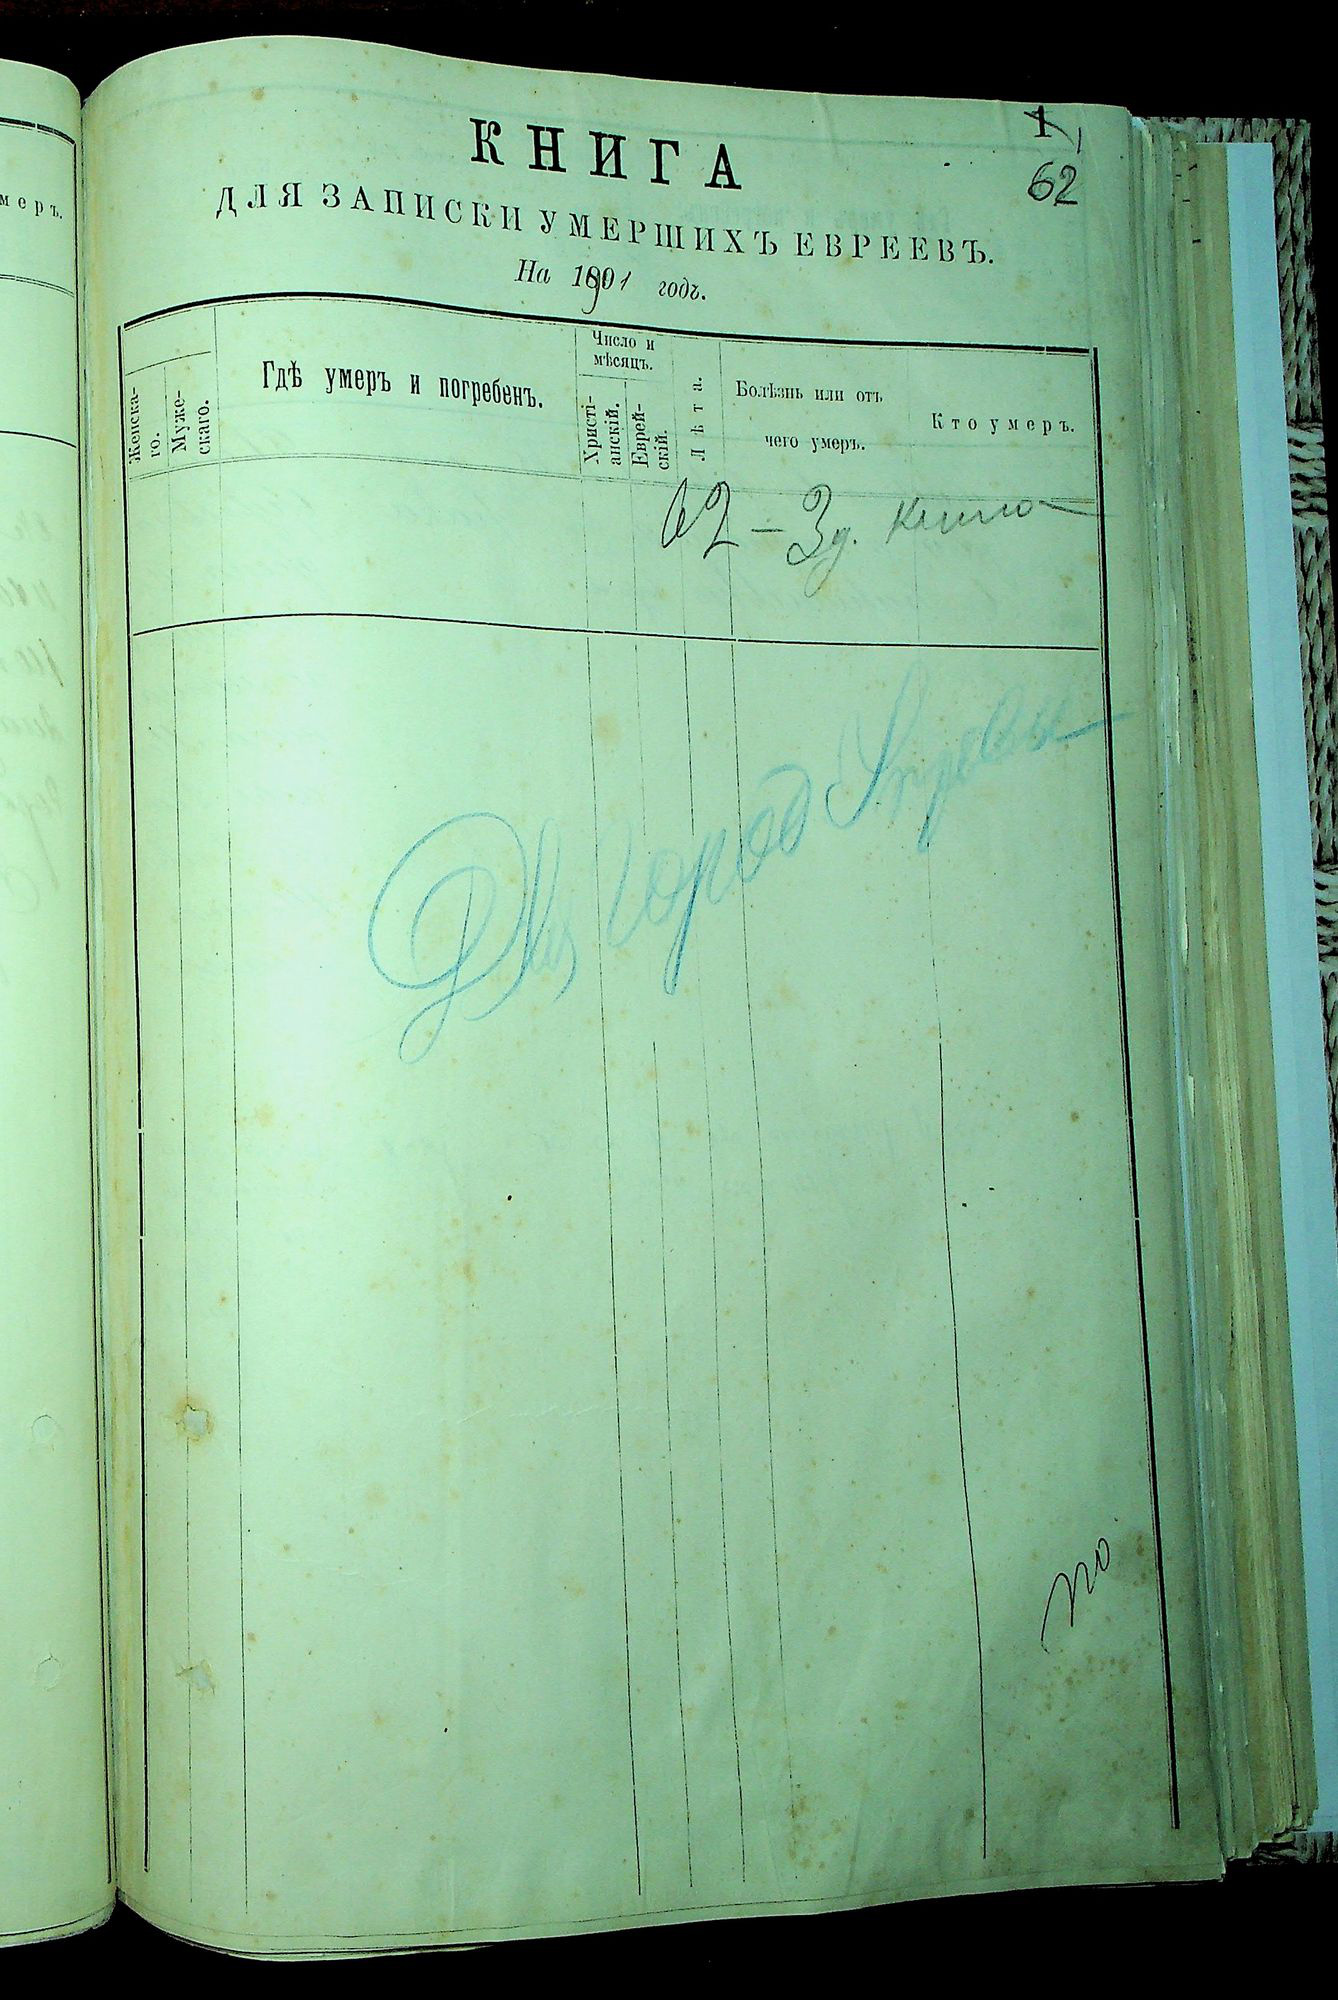 1
62
КНИГА
ДЛЯ ЗАПИСКИ УМЕРШИХЪ ЕВРЕЕВЪ.
На 1901 годъ.
Женска-
го.
Муже-
скаго.
Гдѣ умеръ и погребенъ.
Число и
мѣсяцъ.
Христі-
анскій.
Еврей-
скій.
Лѣта.
Болѣзнь или отъ
чего умеръ.
Кто умеръ.
62 – 3
город
по
меръ.